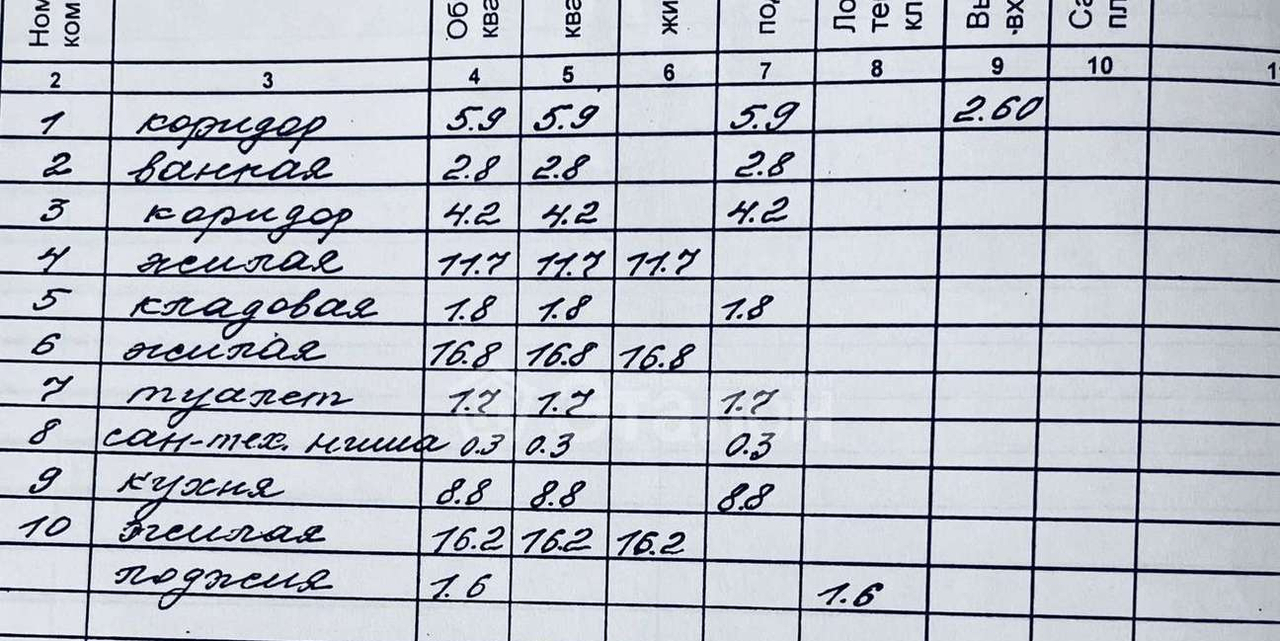 Ном ком Об ква ква жи под Ло те кл Вы -вх Са пл
2 3 4 5 6 7 8 9 10 1
1 коридор 5.9 5.9 5.9 2.60
2 ванная 2.8 2.8 2.8
3 коридор 4.2 4.2 4.2
4 жилая 11.7 11.7 11.7
5 кладовая 1.8 1.8 1.8
6 жилая 16.8 16.8 16.8
7 туалет 1.7 1.7 1.7
8 сан-тех. ниша 0.3 0.3 0.3
9 кухня 8.8 8.8 8.8
10 жилая 16.2 16.2 16.2
лоджия 1.6 1.6
Эталон